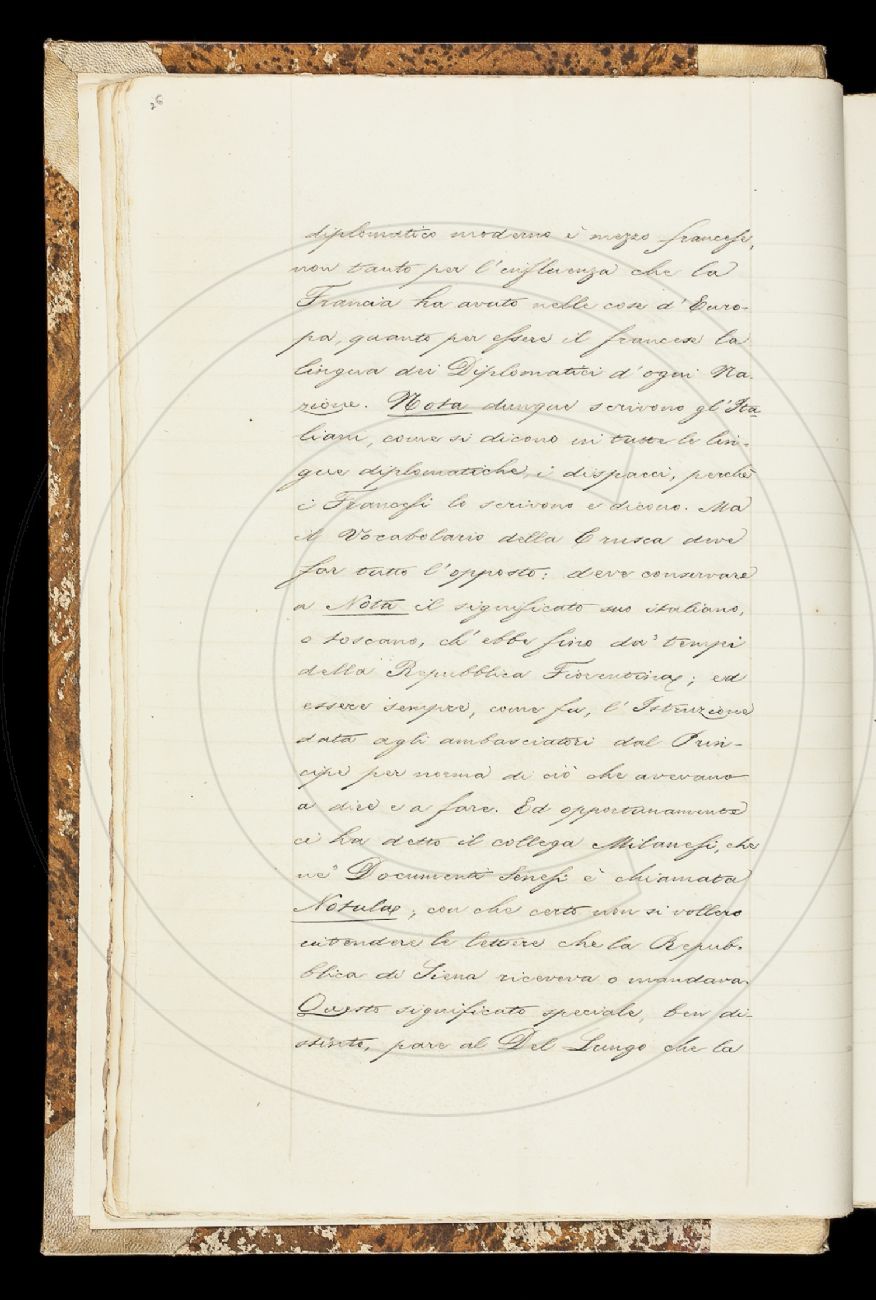 26
diplomatico moderno è mezzo francese,
non tanto per l'influenza che la
Francia ha avuto nelle cose d'Euro-
pa, quanto per essere il francese la
lingua dei Diplomatici d'ogni Na-
zione. Nota dunque scrivono gl'Ita-
liani, come si dicono in tutte le lin-
gue diplomatiche, i dispacci, perchè
i Francesi lo scrivono e dicono. Ma
il Vocabolario della Crusca deve
far tutto l'opposto: deve conservare
a Nota il significato suo italiano,
o toscano, ch'ebbe fino da' tempi
della Repubblica Fiorentina; ed
essere sempre, come fu, l'Istruzione
data agli ambasciatori dal Prin-
cipe per norma di ciò che avevano
a dire e a fare. Ed opportunamente
ci ha detto il collega Milanesi, che
ne' Documenti Senesi è chiamata
Notula; con che certo non si vollero
intendere le lettere che la Repub-
blica di Siena riceveva o mandava.
Questo significato speciale, ben di-
stinto, pare al Del Lungo che la